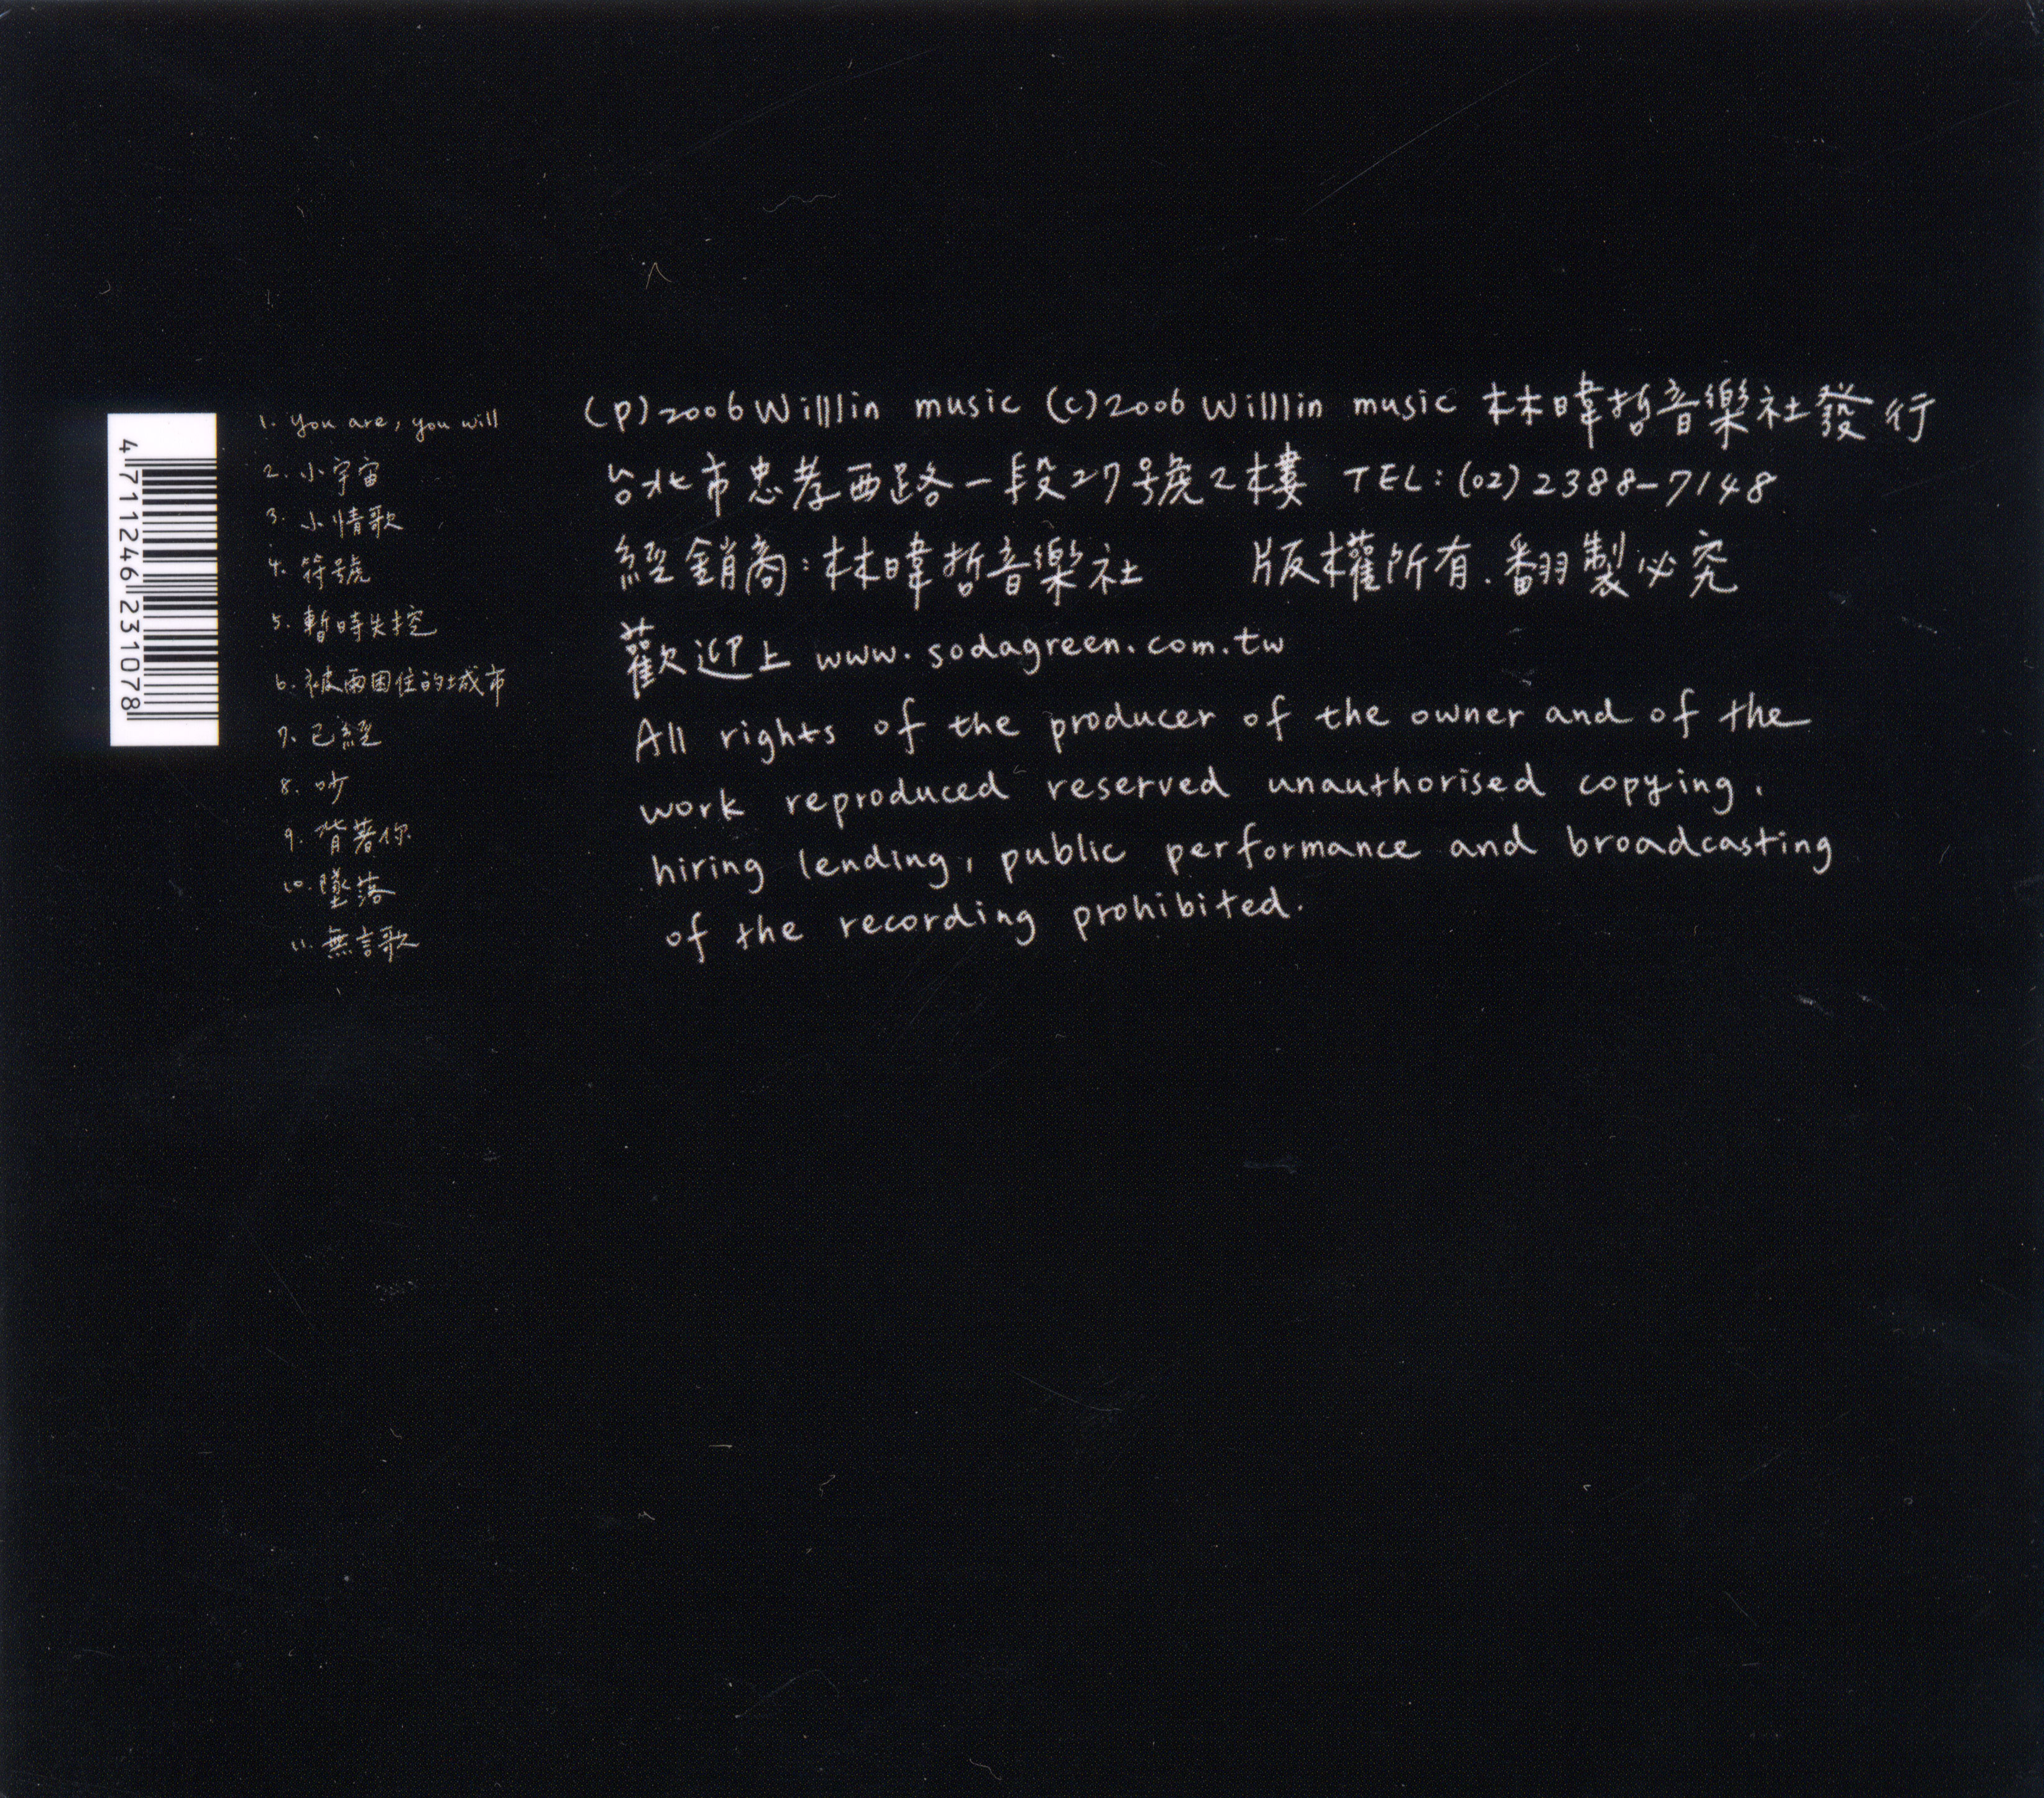 4 711246 231078
1. you are, you will
2. 小宇宙
3. 小情歌
4. 符號
5. 暫時失控
6. 被雨困住的城市
7. 已經
8. 吵
9. 背著你
10. 墜落
11. 無言歌
(p)2006 Willlin music (c)2006 Willlin music 林暐哲音樂社發行
台北市忠孝西路一段27號2樓 TEL:(02)2388-7148
經銷商:林暐哲音樂社 版權所有.翻製必究
歡迎上 www.sodagreen.com.tw
All rights of the producer of the owner and of the
work reproduced reserved unauthorised copying.
hiring lending, public performance and broadcasting
of the recording prohibited.